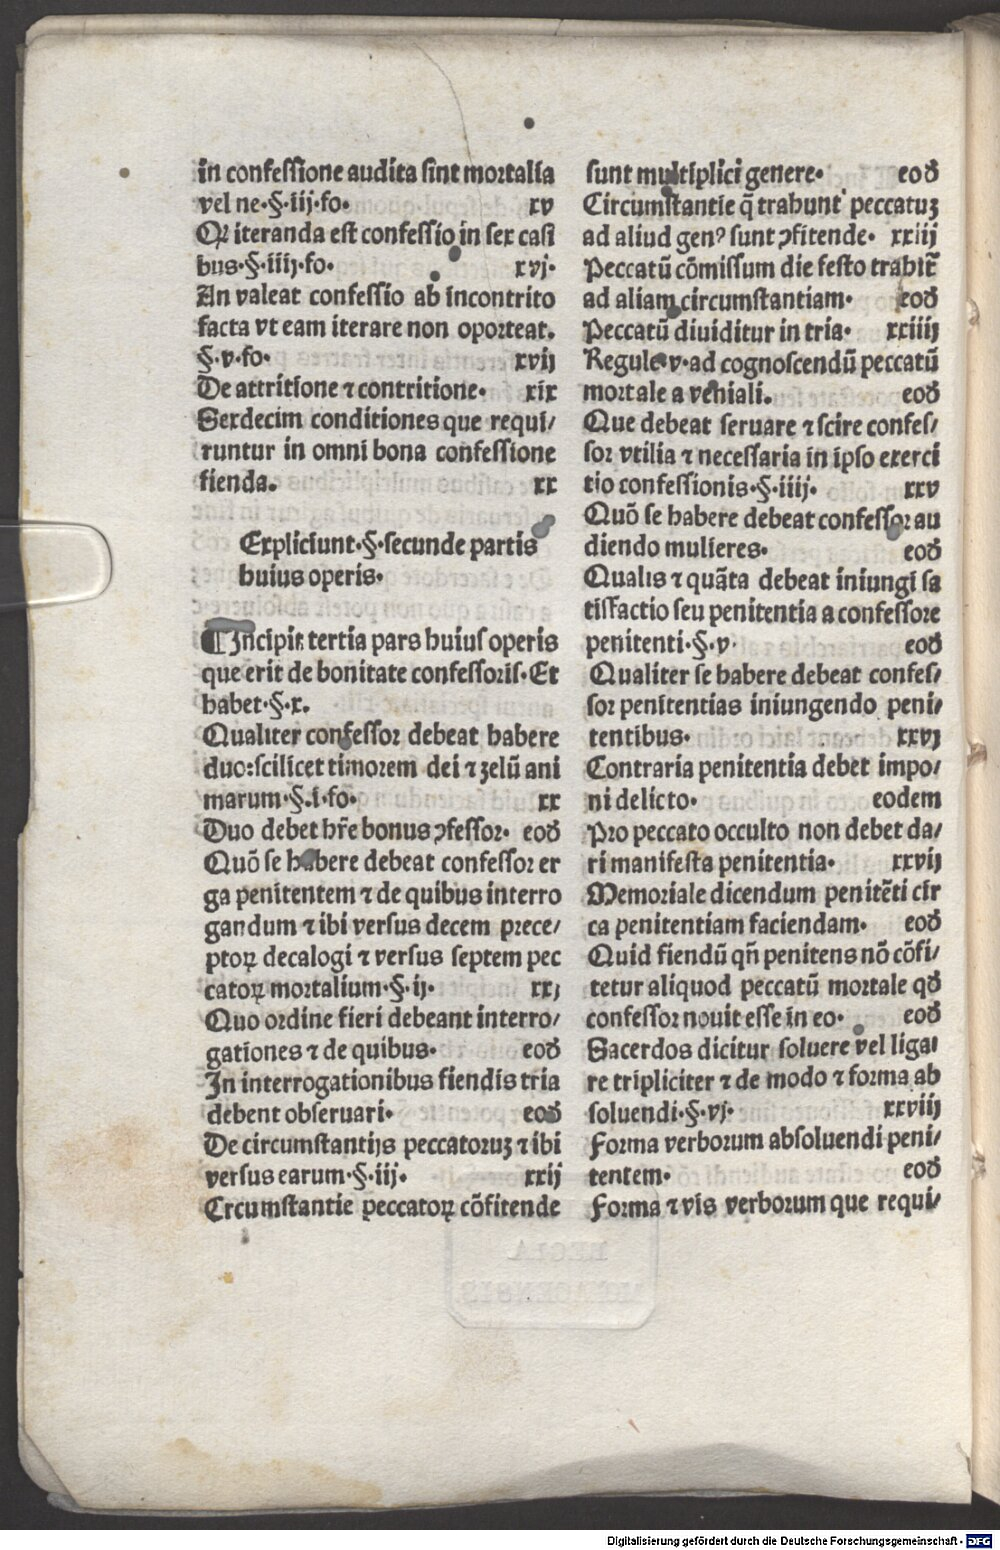 in confessione audita sint mortalia
vel ne·§·iij·fo· xv
Qꝛ iteranda est confessio in sex casi
bus·§·iiij·fo· xvj·
An valeat confessio ab incontrito
facta vt eam iterare non oporteat.
§·v·fo· xvij
De attritione ⁊ contritione· xix
Sexdecim conditiones que requi/
runtur in omni bona confessione
fienda. xx
Expliciunt·§·secunde partis
huius operis·
¶Incipit tertia pars huius operis
que erit de bonitate confessoris·Et
habet·§·x.
Qualiter confessor debeat habere
duo:scilicet timorem dei ⁊ zelū ani
marum·§·i·fo· xx
Duo debet hr̄e bonus ꝯfessor· eoð
Quō se habere debeat confessor er
ga penitentem ⁊ de quibus interro
gandum ⁊ ibi versus decem prece/
ptoꝝ decalogi ⁊ versus septem pec
catoꝝ mortalium·§·ij· xxj
Quo ordine fieri debeant interro/
gationes ⁊ de quibus· eoð
In interrogationibus fiendis tria
debent obseruari· eoð
De circumstantijs peccatoruʒ ⁊ ibi
versus earum·§·iij· xxij
Crcumstantie peccatoꝝ cōfitende
sunt multiplici genere· eoð
Circumstantie q̄ trahunt peccatuʒ
ad aliud genꝰ sunt ꝯfitende· xxiij
Peccatū cōmissum die festo trahit̄
ad aliam circumstantiam· eoð
Peccatū diuiditur in tria· xxiiij
Regule·v·ad cognoscendū peccatū
mortale a veniali. eoð
Que debeat seruare ⁊ scire confes/
sor vtilia ⁊ necessaria in ipso exerci
tio confessionis·§·iiij· xxv
Quō se habere debeat confessor au
diendo mulieres· eoð
Qualis ⁊ quāta debeat iniungi sa
tisfactio seu penitentia a confessore
penitenti·§·v· eoð
Qualiter se habere debeat confes/
sor penitentias iniungendo peni/
tentibus· xxvj
Contraria penitentia debet impo/
ni delicto· eodem
Pro peccato occulto non debet da/
ri manifesta penitentia· xxvij
Memoriale dicendum penitēti cir
ca penitentiam faciendam· eoð
Quid fiendū qn̄ penitens nō cōfi/
tetur aliquod peccatū mortale qð
confessor nouit esse in eo· eoð
Sacerdos dicitur soluere vel liga/
re tripliciter ⁊ de modo ⁊ forma ab
soluendi·§·vj· xxviij
Forma verborum absoluendi peni/
tentem· eoð
Forma ⁊ vis verborum que requi/
Digitalisierung gefördert durch die Deutsche Forschungsgemeinschaft - DFG